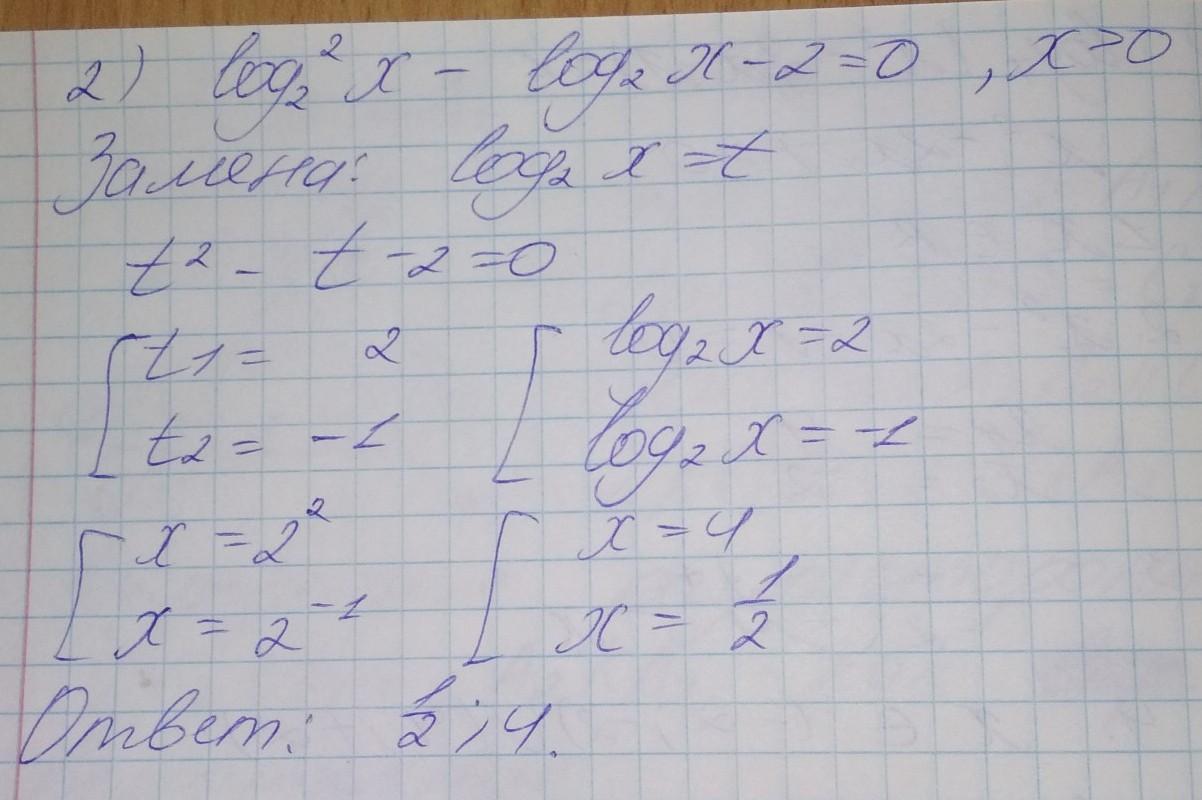 2) log₂² x - log₂ x - 2 = 0 , x > 0
Замена: log₂ x = t
t² - t - 2 = 0
[ t1 = 2 [ log₂ x = 2
t2 = -1 log₂ x = -1
[ x = 2² [ x = 4
x = 2⁻¹ x = 1/2
Ответ: 1/2 ; 4.